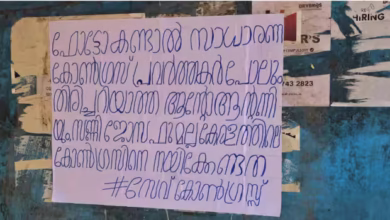 HIRING
R'S
743 2823
ഫോട്ടോ കണ്ടാൽ സാധാരണ
കോൺഗ്രസ് പ്രവർത്തകർ പോലും
തിരിച്ചറിയാത്ത ആന്റോ ആന്റണി
യും സണ്ണി ജോസഫുമല്ല കേരളത്തിലെ
കോൺഗ്രസിനെ നയിക്കേണ്ടത്
#സേവ് കോൺഗ്രസ്സ്